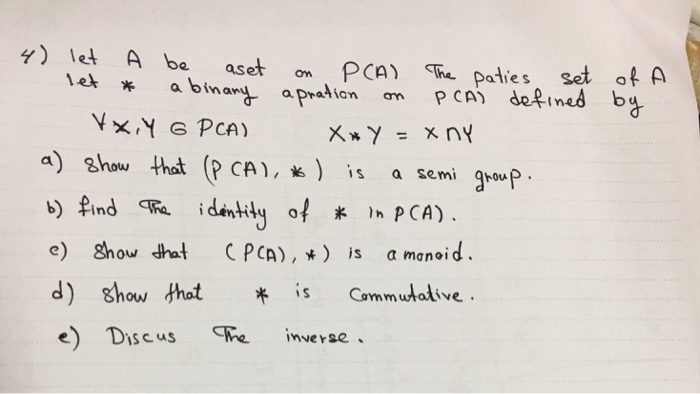 4) let A be aset on P(A) The paties set of A
let * a binany apration on P(A) defined by
∀x,y ∈ P(A) X * Y = x ∩ Y
a) show that (P(A), *) is a semi group.
b) find The identity of * in P(A).
c) show that (P(A), *) is a monoid.
d) show that * is Commutative.
e) Discus The inverse.